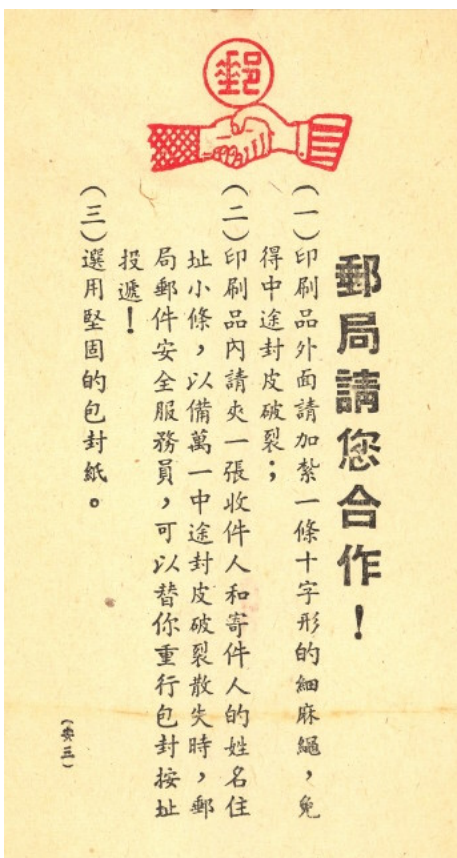 郵
郵局請您合作！
（一）印刷品外面請加紮一條十字形的細麻繩，免
得中途封皮破裂；
（二）印刷品內請夾一張收件人和寄件人的姓名住
址小條，以備萬一中途封皮破裂散失時，郵
局郵件安全服務員，可以替你重行包封按址
投遞！
（三）選用堅固的包封紙。
（安三）